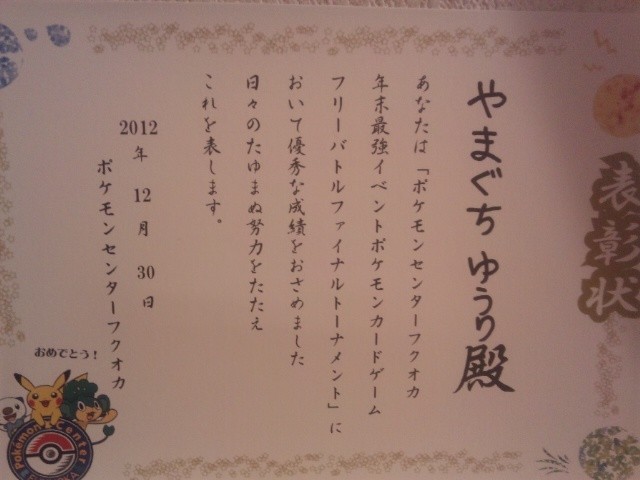 表彰状
やまぐち ゆうり殿
あなたは「ポケモンセンターフクオカ
年末最強イベントポケモンカードゲーム
フリーバトルファイナルトーナメント」に
おいて優秀な成績をおさめました
日々のたゆまぬ努力をたたえ
これを表します。
2012年 12月 30日
ポケモンセンターフクオカ
おめでとう!
Pokémon Center